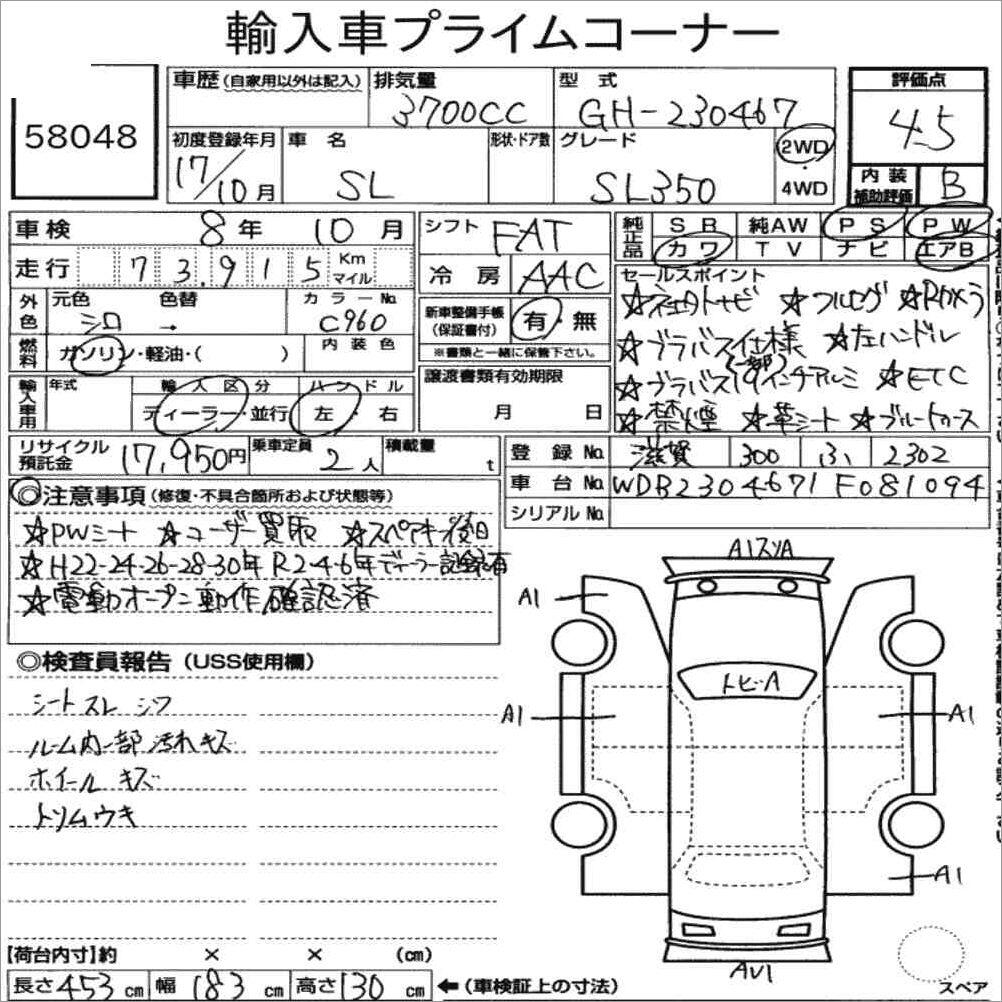 輸入車プライムコーナー
58048
車歴 (自家用以外は記入) 排気量 3700CC 型式 GH-230467
評価点 4.5
初度登録年月 17/10月 車名 SL 形状・ドア数 グレード SL350 2WD 4WD
内装補助評価 B
車検 8年 10月 シフト FAT
純正品 SR 純AW PS PW
カワ TV ナビ エアB
走行 73,915 Km マイル 冷房 AAC
外色 元色 シロ → 色替 カラーNo. C960
新車整備手帳 (保証書付) 有・無
※書類と一緒に保管下さい。
燃料 ガソリン・軽油・( ) 内装色
セールスポイント
☆ネェクトナビ ☆フルセグ ☆Rカメラ
☆ブラバス仕様 ☆左ハンドル
(一部)
☆ブラバス19インチアルミ ☆ETC
☆禁煙 ☆革シート ☆ブルートゥース
輸入車用 年式 輸入区分 ディーラー・並行 ハンドル 左・右
譲渡書類有効期限 月 日
リサイクル預託金 17,950円 乗車定員 2人 積載量 t
登録No. 滋賀 300 ふ 2302
車台No. WDB2304671F081094
シリアルNo.
◎注意事項 (修復・不具合箇所および状態等)
☆PWシート ☆ユーザー買取 ☆スペアキー後日
☆H22-24-26-28-30年 R2-4-6年ディーラー記録有
☆電動オープン動作確認済
◎検査員報告 (USS使用欄)
シートスレ シワ
ルーム内一部汚れキズ
ホイールキズ
トリムウキ
A1スリA
A1
トビA
A1
A1
A1
AU1
【荷台内寸】約 × × (cm)
長さ 453 cm 幅 183 cm 高さ 130 cm ←(車検証上の寸法)
スペア